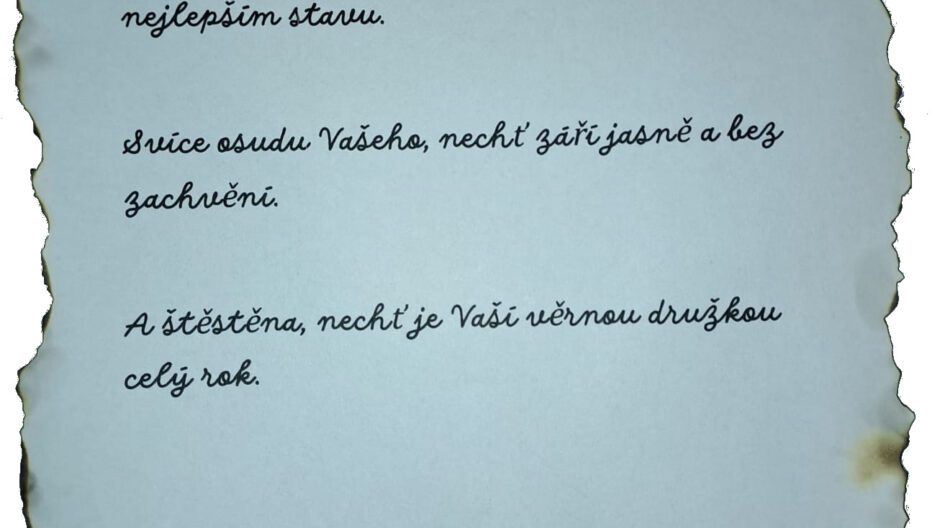 nejlepším stavu.
Svíce osudu Vašeho, nechť září jasně a bez
zachvění.
A štěstěna, nechť je Vaší věrnou družkou
celý rok.